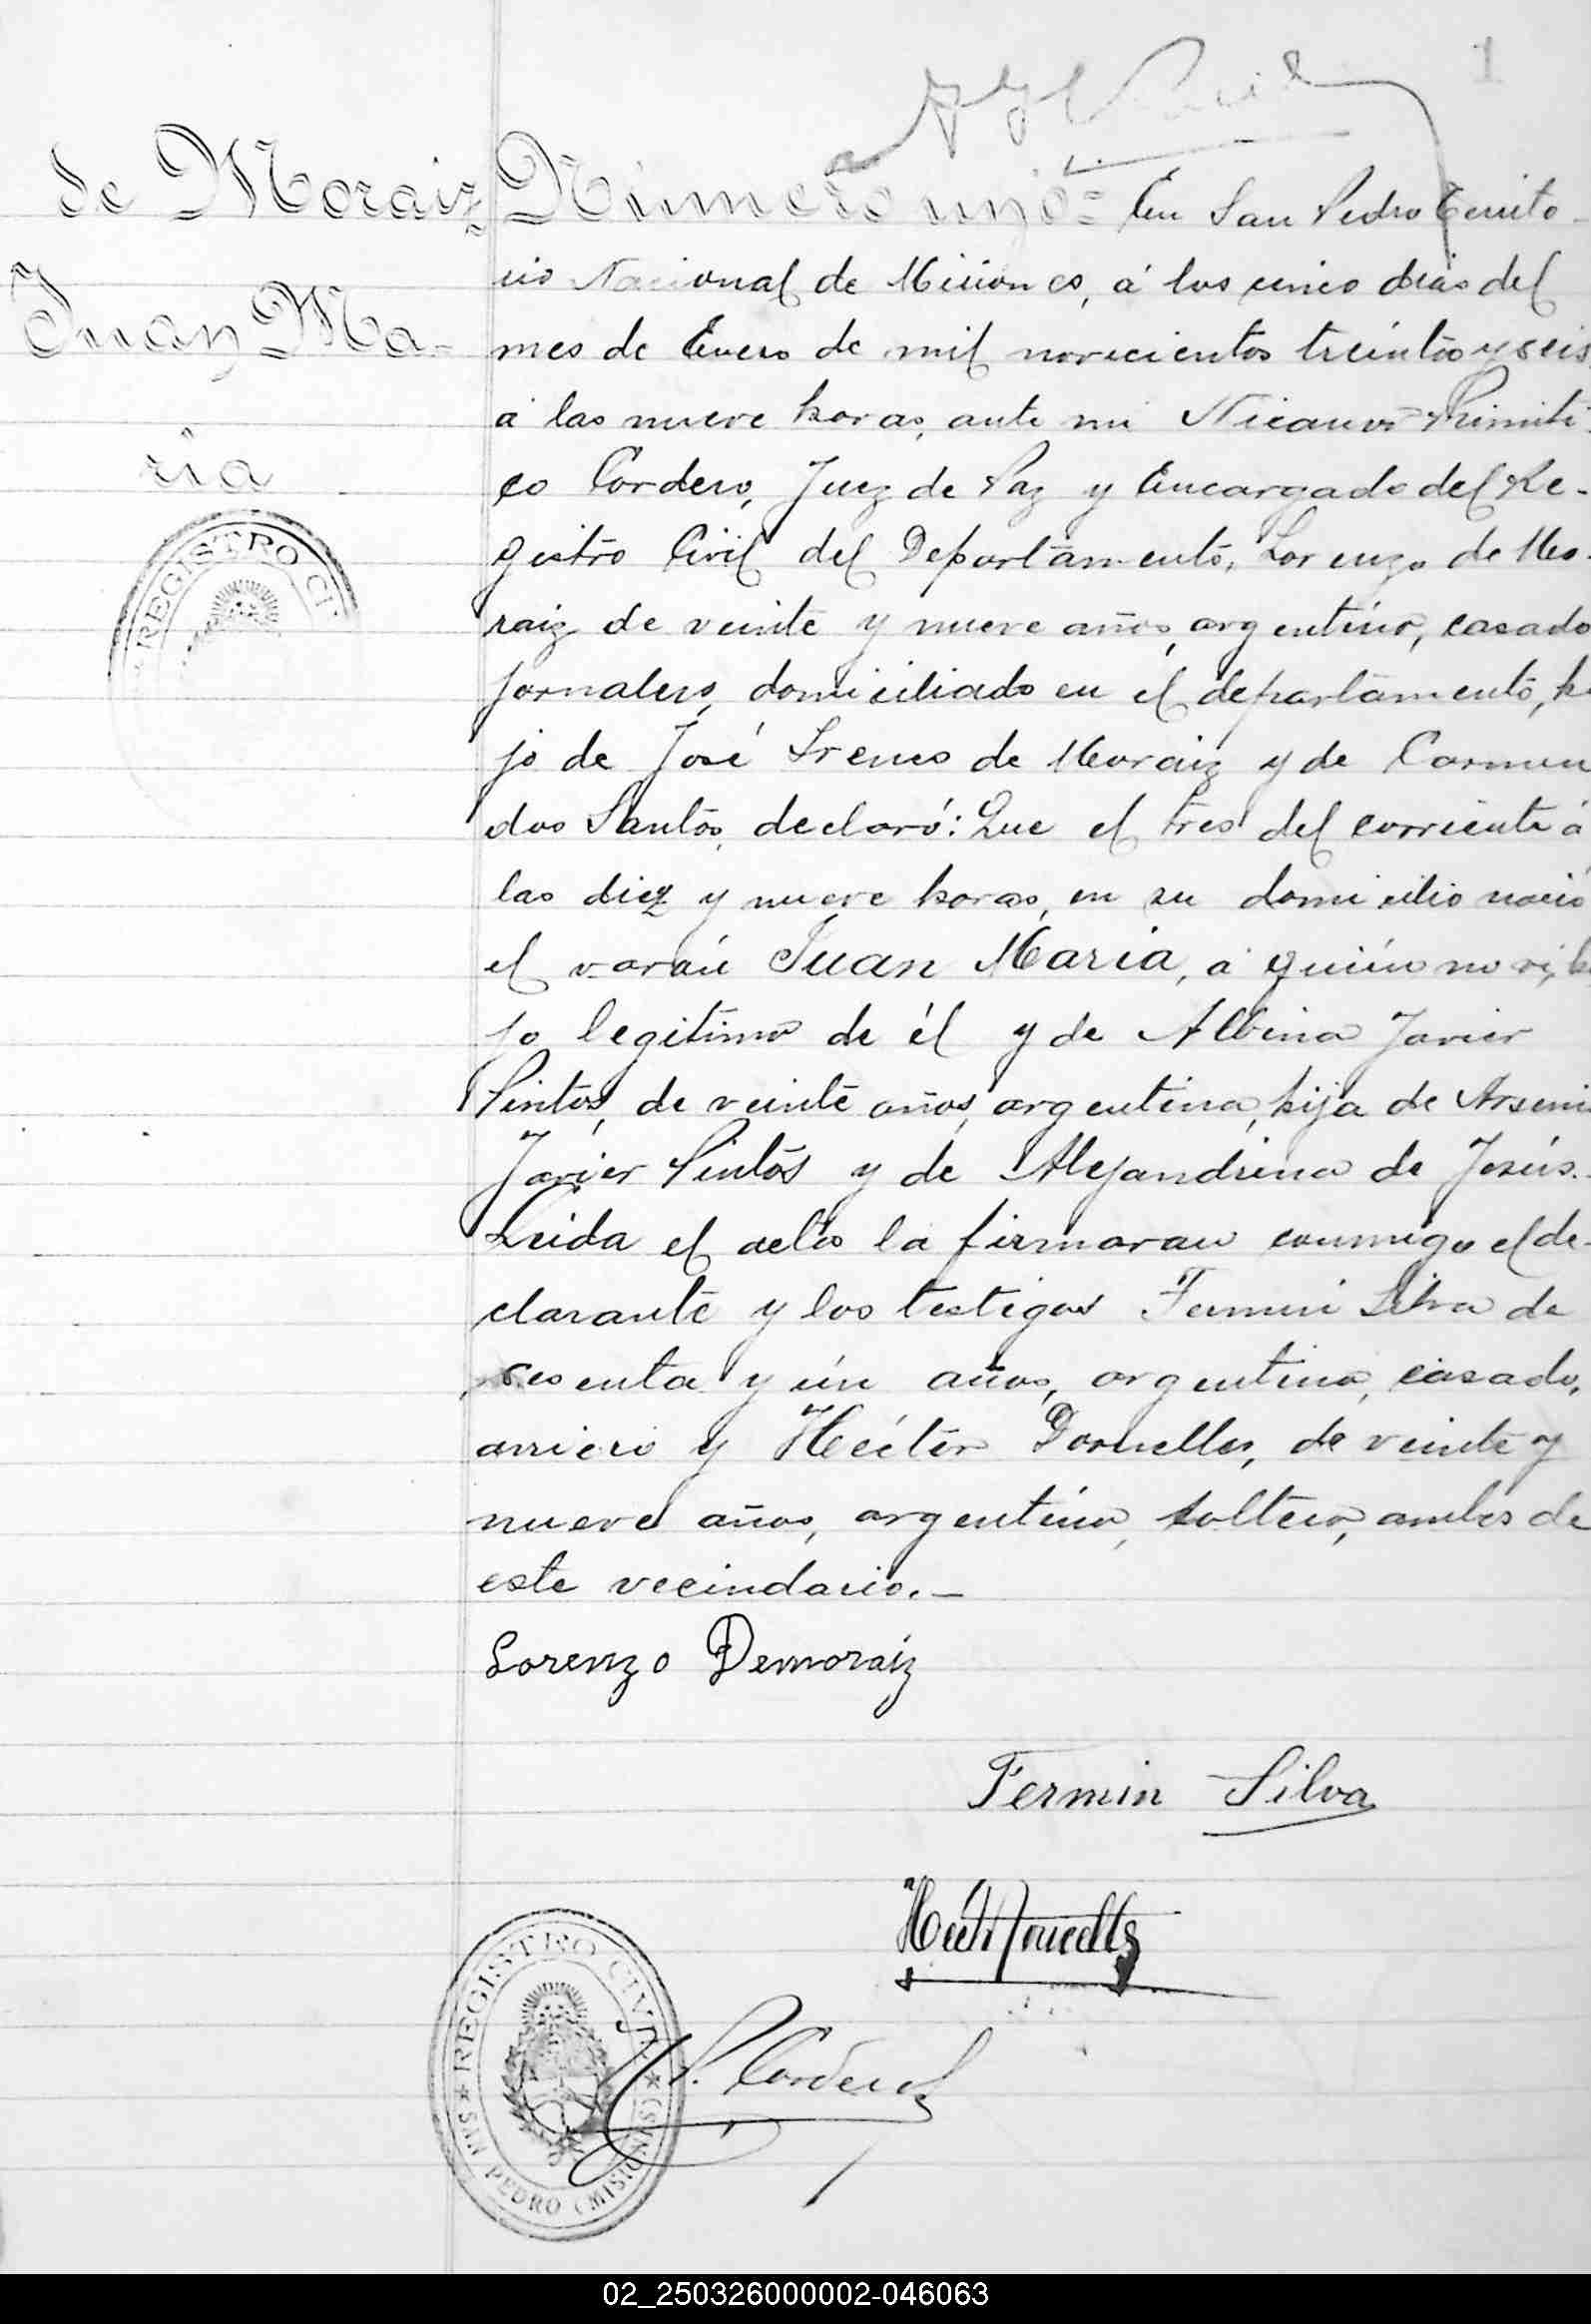 1
de Moraiz
Juan Ma-
ria
REGISTRO CI
Número uno= En San Pedro Territo-
rio Nacional de Misiones, á los cinco dias del
mes de Enero de mil novecientos treinta y seis
á las nueve horas, ante mi Nicanor Primiti-
vo Cordero, Juez de Paz y Encargado del Re-
gistro Civil del Departamento, Lorenzo de Mo-
raiz de veinte y nueve años, argentino, casado
jornalero, domiciliado en el departamento, hi
jo de José Ireneo de Moraiz y de Carmen
dos Santos, declaró: Que el tres del corriente á
las diez y nueve horas, en su domicilio nació
el varón Juan Maria, á quién no vi, hi
jo legitimo de él y de Albina Javier
Pintos, de veinte años, argentina, hija de Arseni
Javier Pintos y de Alejandrina de Jesús.-
Leida el acta la firmaran conmigo el de-
clarante y los testigos Fermin Silva de
sesenta y ún años, argentino, casado,
arriero y Héctor Dornelles, de veinte y
nueve años, argentino, soltero, ambos de
este vecindario.-
Lorenzo Demoraiz
Fermin Silva
Hect Dornells
P. Cordero
REGISTRO CIVIL
SAN PEDRO (MISIONES)
02_250326000002-046063